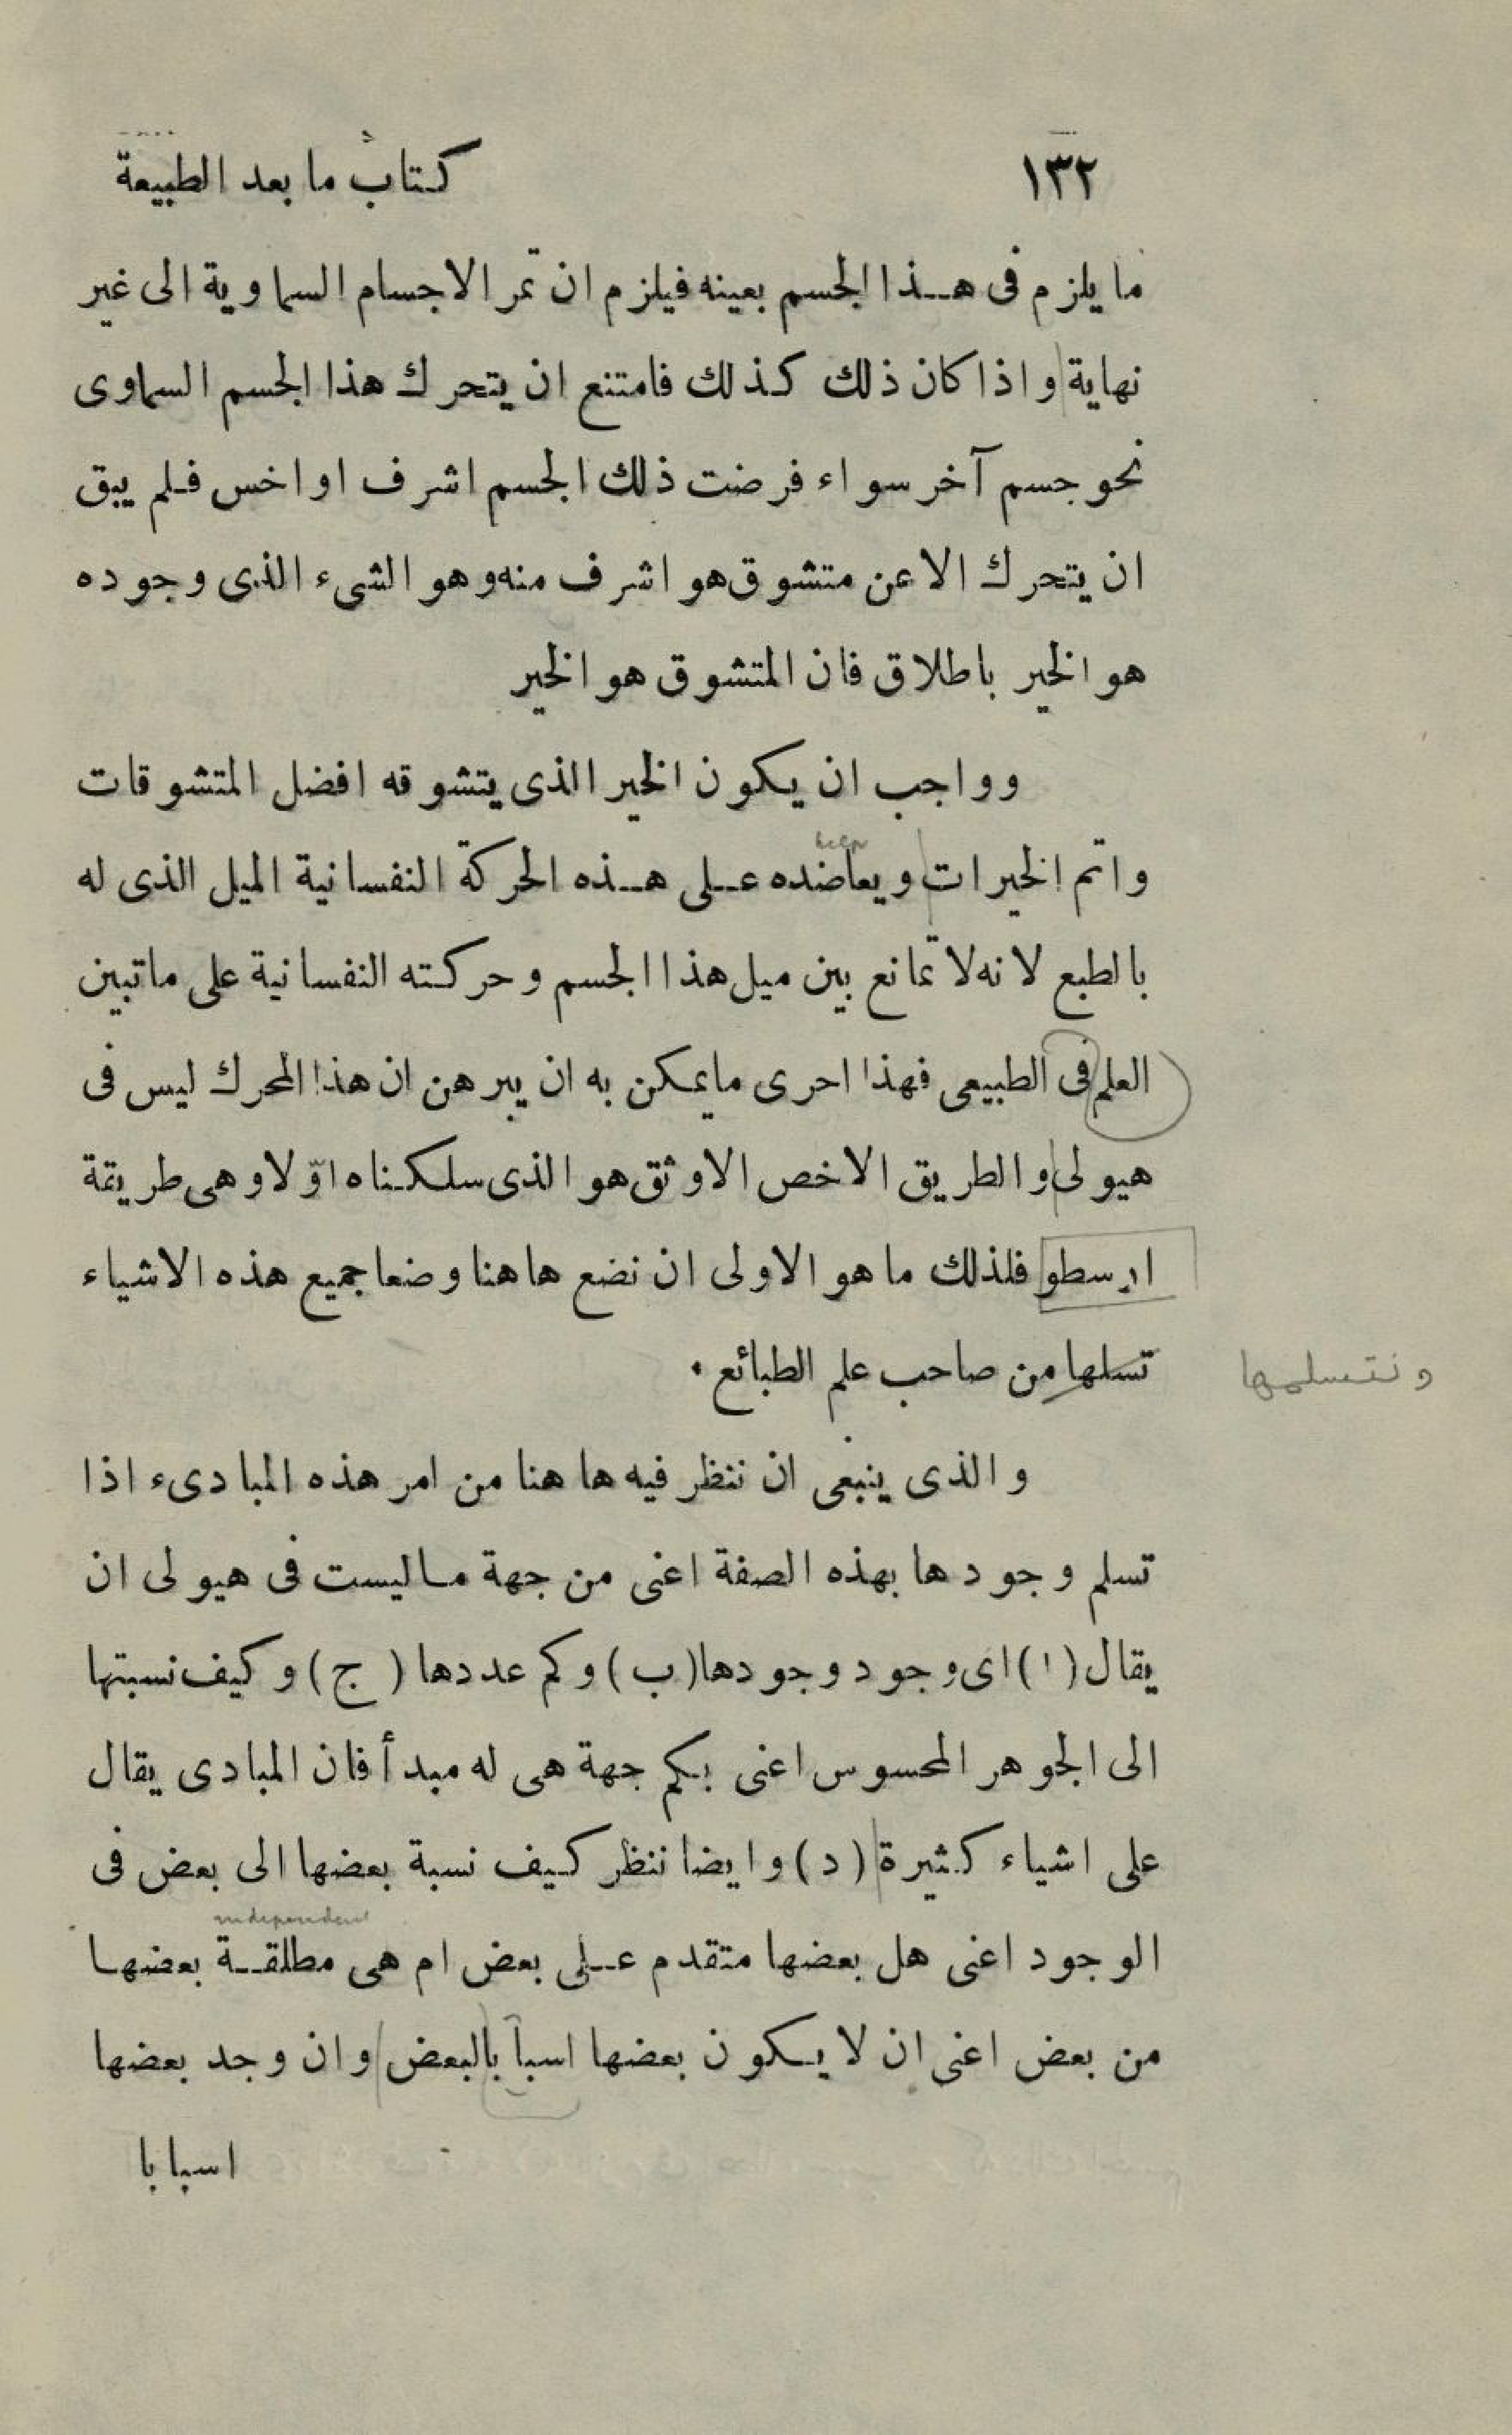 ١٣٢ كتاب ما بعد الطبيعة
ما يلزم فى هذا الجسم بعينه فيلزم ان تمر الاجسام السماوية الى غير
نهاية واذا كان ذلك كذلك فامتنع ان يتحرك هذا الجسم السماوى
نحو جسم آخر سواء فرضت ذلك الجسم اشرف او اخس فلم يبق
ان يتحرك الا عن متشوق هو اشرف منه وهو الشىء الذى وجوده
هو الخير باطلاق فان المتشوق هو الخير
وواجب ان يكون الخير الذى يتشوقه افضل المتشوقات
help
واتم الخيرات ويعاضده على هذه الحركة النفسانية الميل الذى له
بالطبع لانه لا تمانع بين ميل هذا الجسم وحركته النفسانية على ما تبين
العلم فى الطبيعى فهذا احرى ما يمكن به ان يبرهن ان هذا المحرك ليس فى
هيولى والطريق الاخص الاوثق هو الذى سلكناه اوّلا وهى طريقة
ارسطو فلذلك ما هو الاولى ان نضع هاهنا وضعا جميع هذه الاشياء
تسلمها من صاحب علم الطبائع ٠
ونتسلمها
والذى ينبغى ان ننظر فيه هاهنا من امر هذه المبادىء اذا
تسلم وجودها بهذه الصفة اعنى من جهة ما ليست فى هيولى ان
يقال (ا) اى وجود وجودها (ب) وكم عددها (ج) وكيف نسبتها
الى الجوهر المحسوس اعنى بكم جهة هى له مبدأ فان المبادى يقال
على اشياء كثيرة (د) وايضا ننظر كيف نسبة بعضها الى بعض فى
independent
الوجود اعنى هل بعضها متقدم على بعض ام هى مطلقة بعضها
من بعض اعنى ان لا يكون بعضها اسبآ بالبعض وان وجد بعضها
اسبابا